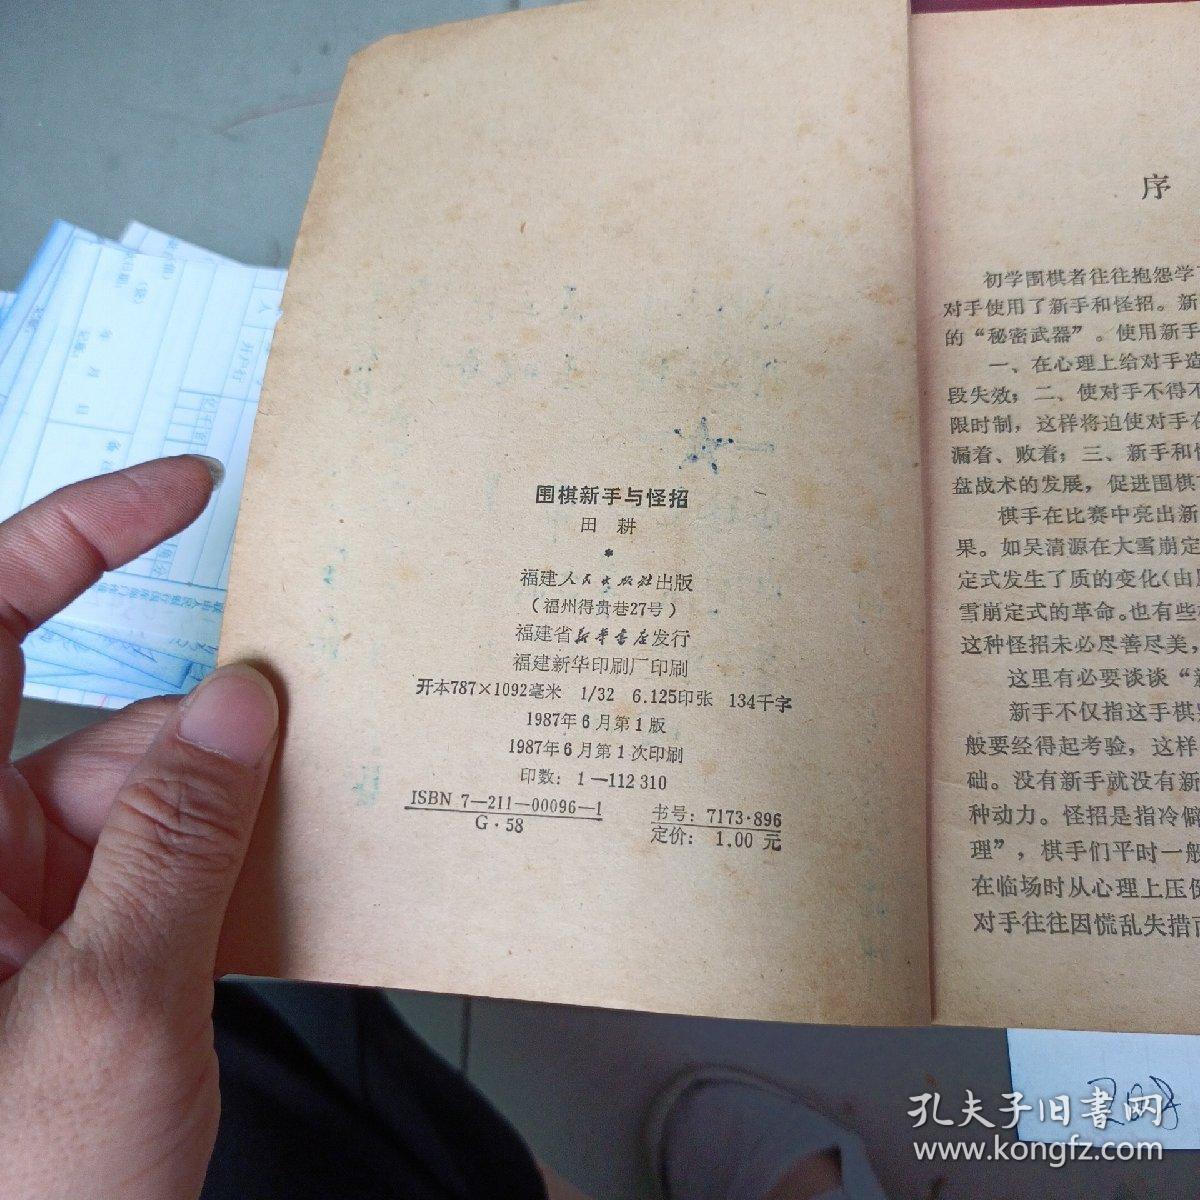 围棋新手与怪招
田 耕
*
福建人民出版社出版
（福州得贵巷27号）
福建省新华书店发行
福建新华印刷厂印刷
开本787×1092毫米 1/32 6.125印张 134千字
1987年6月第1版
1987年6月第1次印刷
印数：1—112 310
ISBN 7—211—00096—1
G·58
书号：7173·896
定价：1.00 元
序
初学围棋者往往抱怨学
对手使用了新手和怪招。新
的“秘密武器”。使用新手
一、在心理上给对手造
段失效；二、使对手不得不
限时制，这样将迫使对手在
漏着、败着；三、新手和怪
盘战术的发展，促进围棋
棋手在比赛中亮出新
果。如吴清源在大雪崩定
定式发生了质的变化（由
雪崩定式的革命。也有些
这种怪招未必尽善尽美，
这里有必要谈谈“新
新手不仅指这手棋
般要经得起考验，这样
础。没有新手就没有新
种动力。怪招是指冷僻
理”，棋手们平时一般
在临场时从心理上压
对手往往因慌乱失措而
孔夫子旧书网
www.kongfz.com